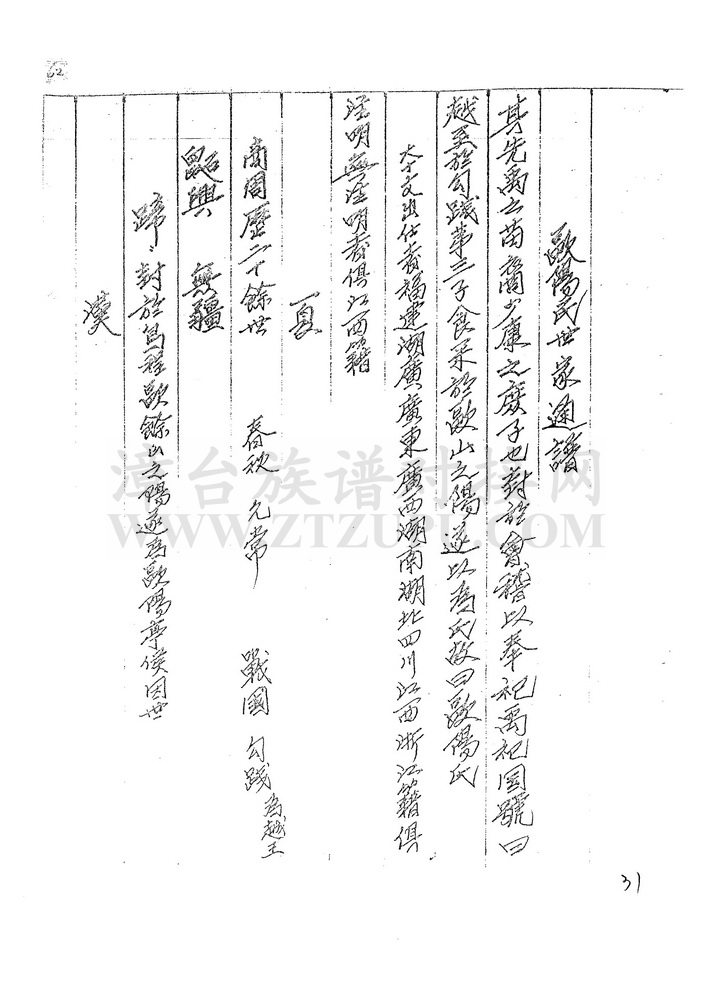 歐陽氏世家通譜
其先禹之苗裔少康之庶子也封於會稽以奉祀禹祀国號曰
越至於勾践第三子食采於歐山之陽遂以為氏故曰歐陽氏
大丈出仕者福建湖廣廣東廣西湖南湖北四川江西浙江籍俱
注明無注明者俱江西籍
夏
商周歷二十餘世 春秋 允常 戰國 勾践 為越王
鼫興 無疆
蹄 封於烏程歐餘山之陽遂為歐陽亭侯因世
漢
漳台族谱对接网
WWW.ZTZUPU.COM
62
31